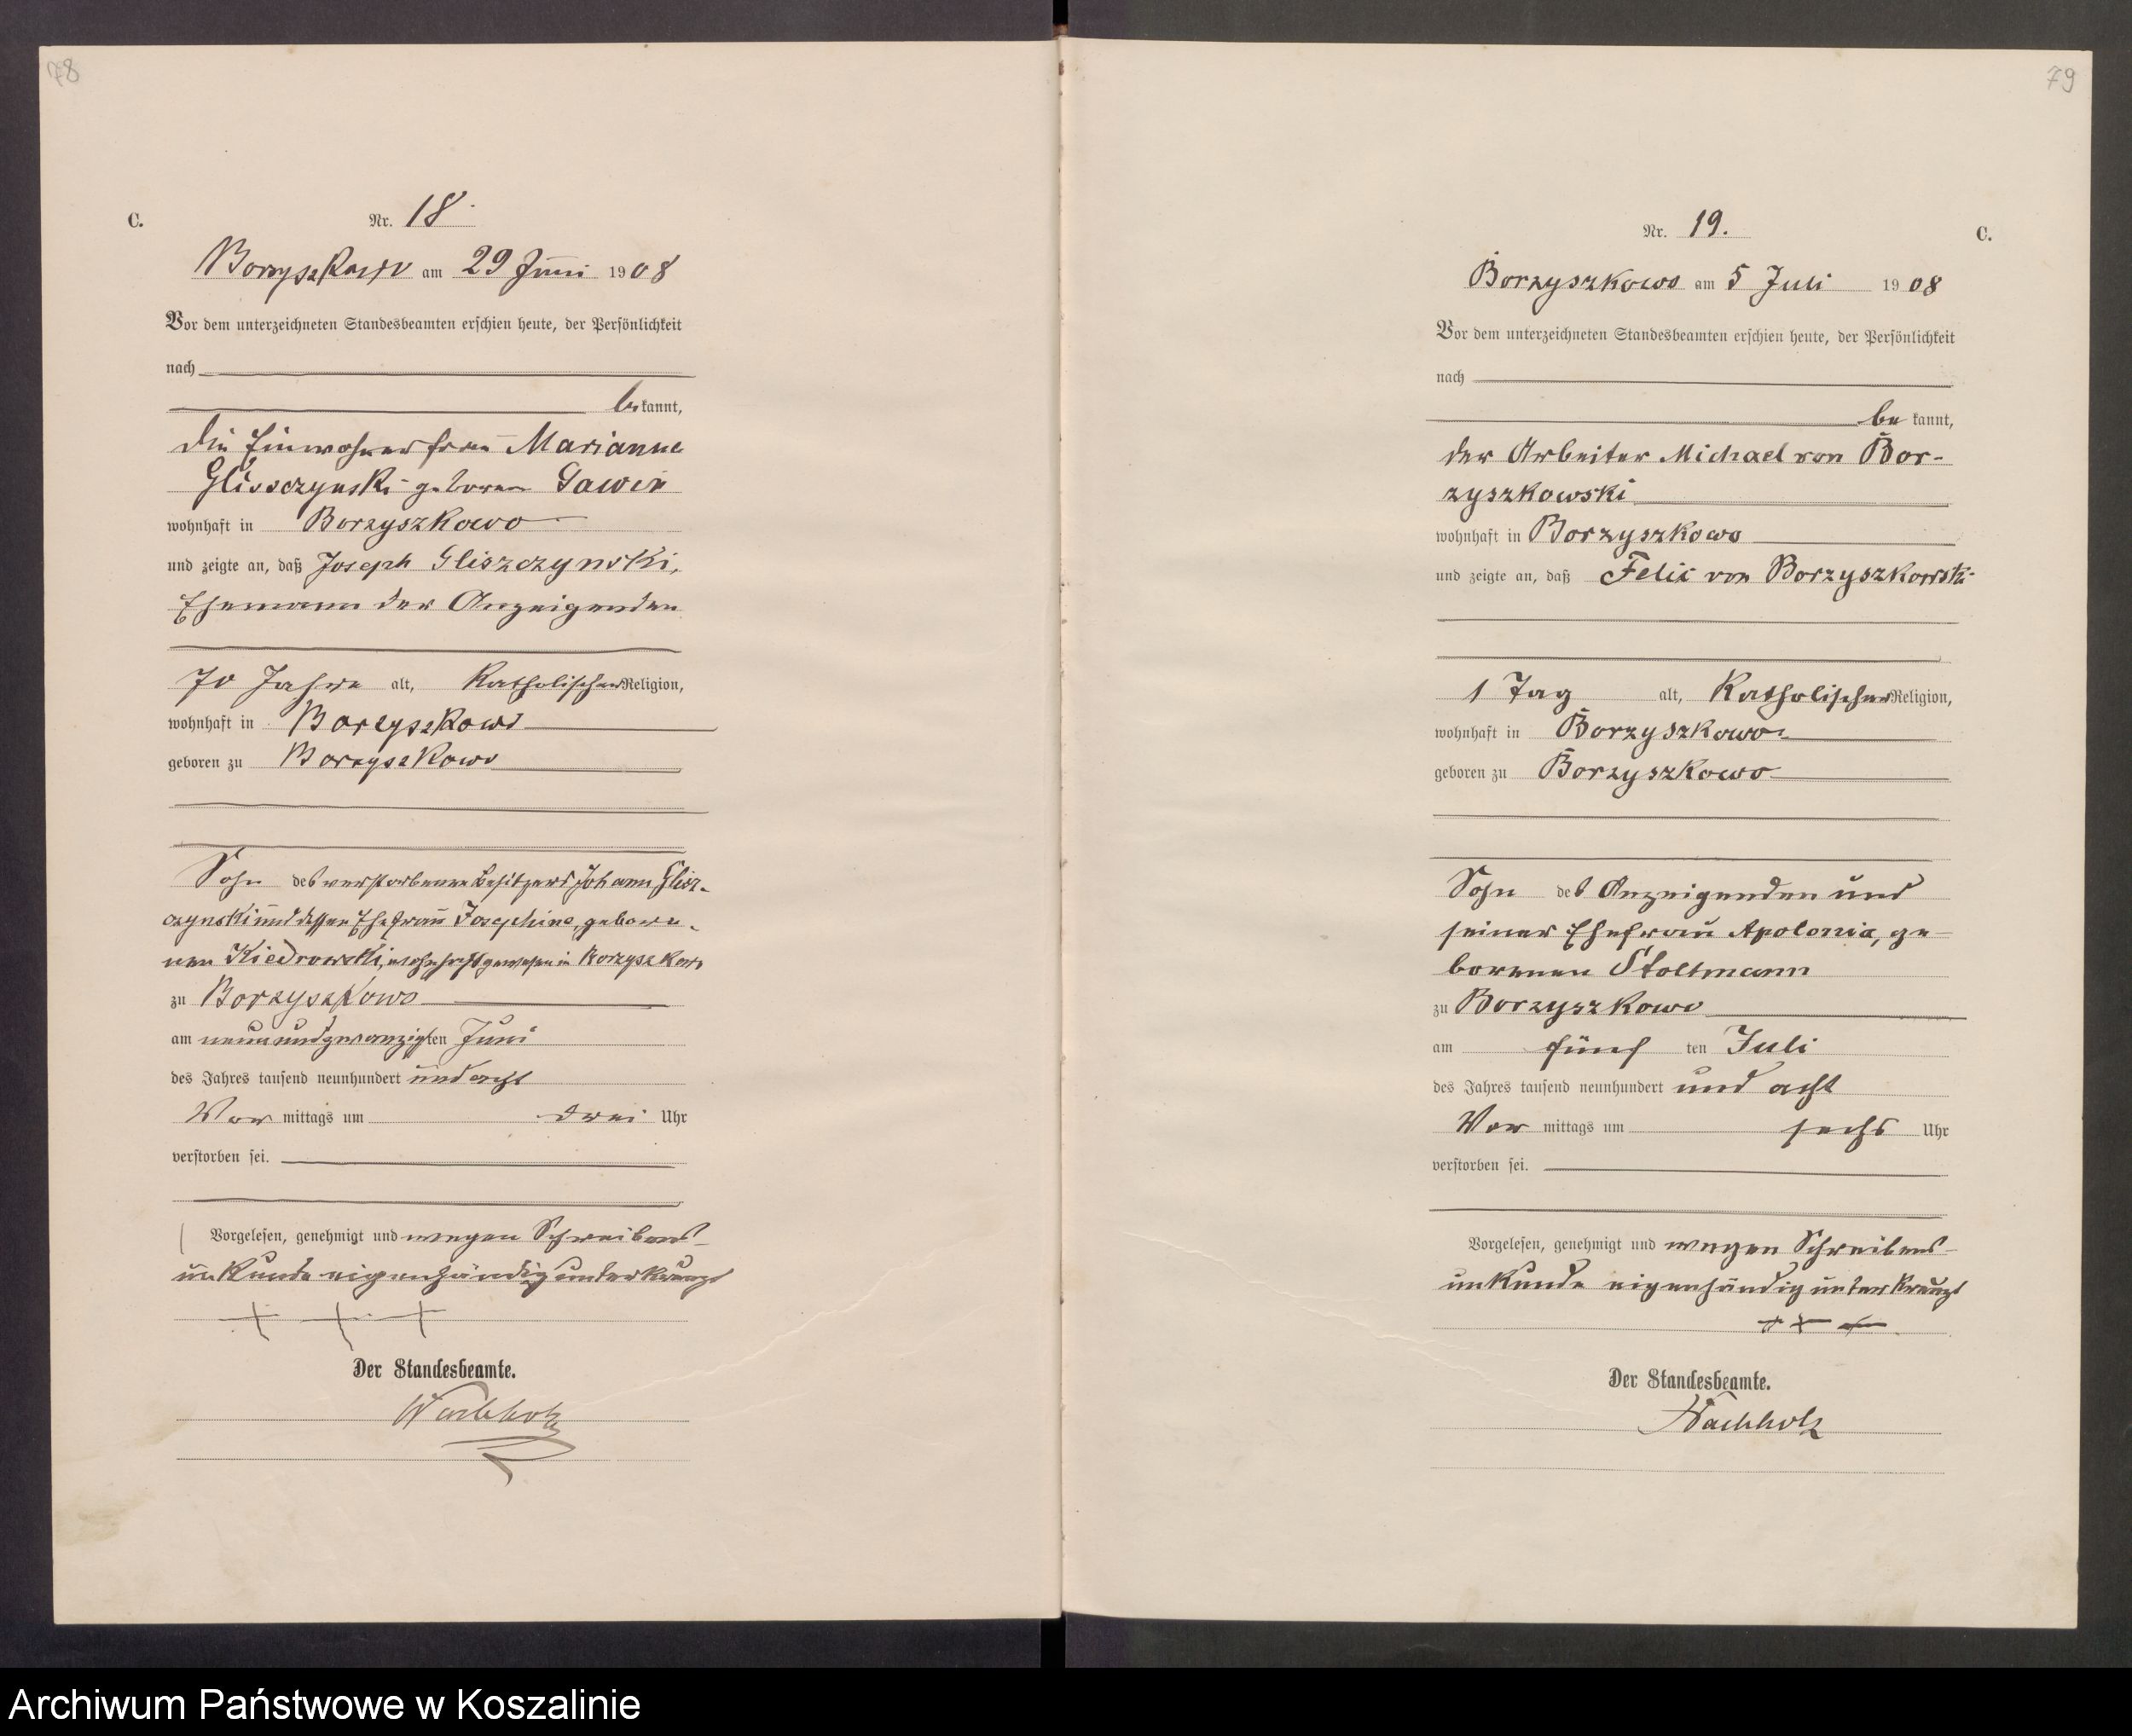 78
C.
Nr. 18.
Borzyszkowo am 29 Juni 1908
Vor dem unterzeichneten Standesbeamten erschien heute, der Persönlichkeit
nach
bekannt,
die Einwohnerfrau Marianne
Glisszynski geborene Gawin
wohnhaft in Borzyszkowo
und zeigte an, daß Joseph Gliszczynski,
Ehemann der Anzeigenden
70 Jahre alt, katholischer Religion,
wohnhaft in Borzyszkowo
geboren zu Borzyszkowo
Sohn des verstorbenen Besitzers Johann Glisz-
czynski und dessen Ehefrau Josephine, gebore-
nen Kiedrowski, wohnhaft gewesen in Borzyszkowo
zu Borzyszkowo
am neunundzwanzigten Juni
des Jahres tausend neunhundert und acht
Vor mittags um drei Uhr
verstorben sei.
Vorgelesen, genehmigt und wegen Schreibens-
unkunde eigenhändig unterkreuzt
+ + +
Der Standesbeamte.
Wachholz
79
C.
Nr. 19.
Borzyszkowo am 5 Juli 1908
Vor dem unterzeichneten Standesbeamten erschien heute, der Persönlichkeit
nach
be kannt,
der Arbeiter Michael von Bor-
zyszkowski
wohnhaft in Borzyszkowo
und zeigte an, daß Felix von Borzyszkowski
1 Tag alt, katholischer Religion,
wohnhaft in Borzyszkowo
geboren zu Borzyszkowo
Sohn des Anzeigenden und
seiner Ehefrau Apolonia, ge-
borenen Stoltmann
zu Borzyszkowo
am fünf ten Juli
des Jahres tausend neunhundert und acht
Vor mittags um sechs Uhr
verstorben sei.
Vorgelesen, genehmigt und wegen Schreibens-
unkunde eigenhändig unterkreuzt
+ + +
Der Standesbeamte.
Wachholz
Archiwum Państwowe w Koszalinie